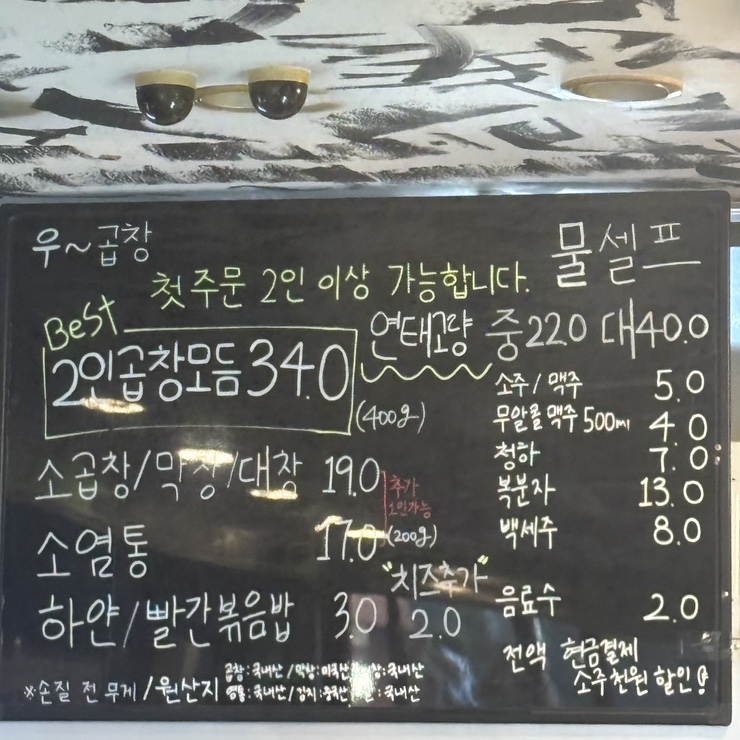 우~곱창
물셀프
첫 주문 2인 이상 가능합니다.
Best
2인곱창모듬 34.0
(400g)
연태고량 중220 대40.0
소주/맥주 5.0
무알콜맥주 500ml 4.0
청하 7.0
복분자 13.0
백세주 8.0
음료수 2.0
소곱창/막창/대창 19.0
소염통 17.0
추가
1인가능
(200g)
하얀/빨간볶음밥 3.0
"치즈추가"
2.0
전액 현금결제
소주천원 할인!
※손질 전 무게/원산지
곱창:국내산/막창:미국산/대창:국내산
염통:국내산/김치:중국산/쌀:국내산